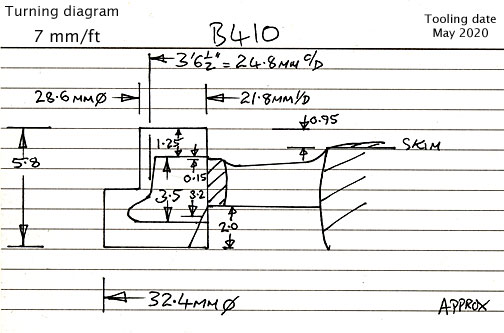 Turning diagram
7 mm/ft
B410
Tooling date
May 2020
3'6½" = 24.8MM C/D
28.6MMØ
21.8MM I/D
0.95
1.25
SKIM
5.8
0.15
3.5
3.2
2.0
32.4MMØ
APPROX